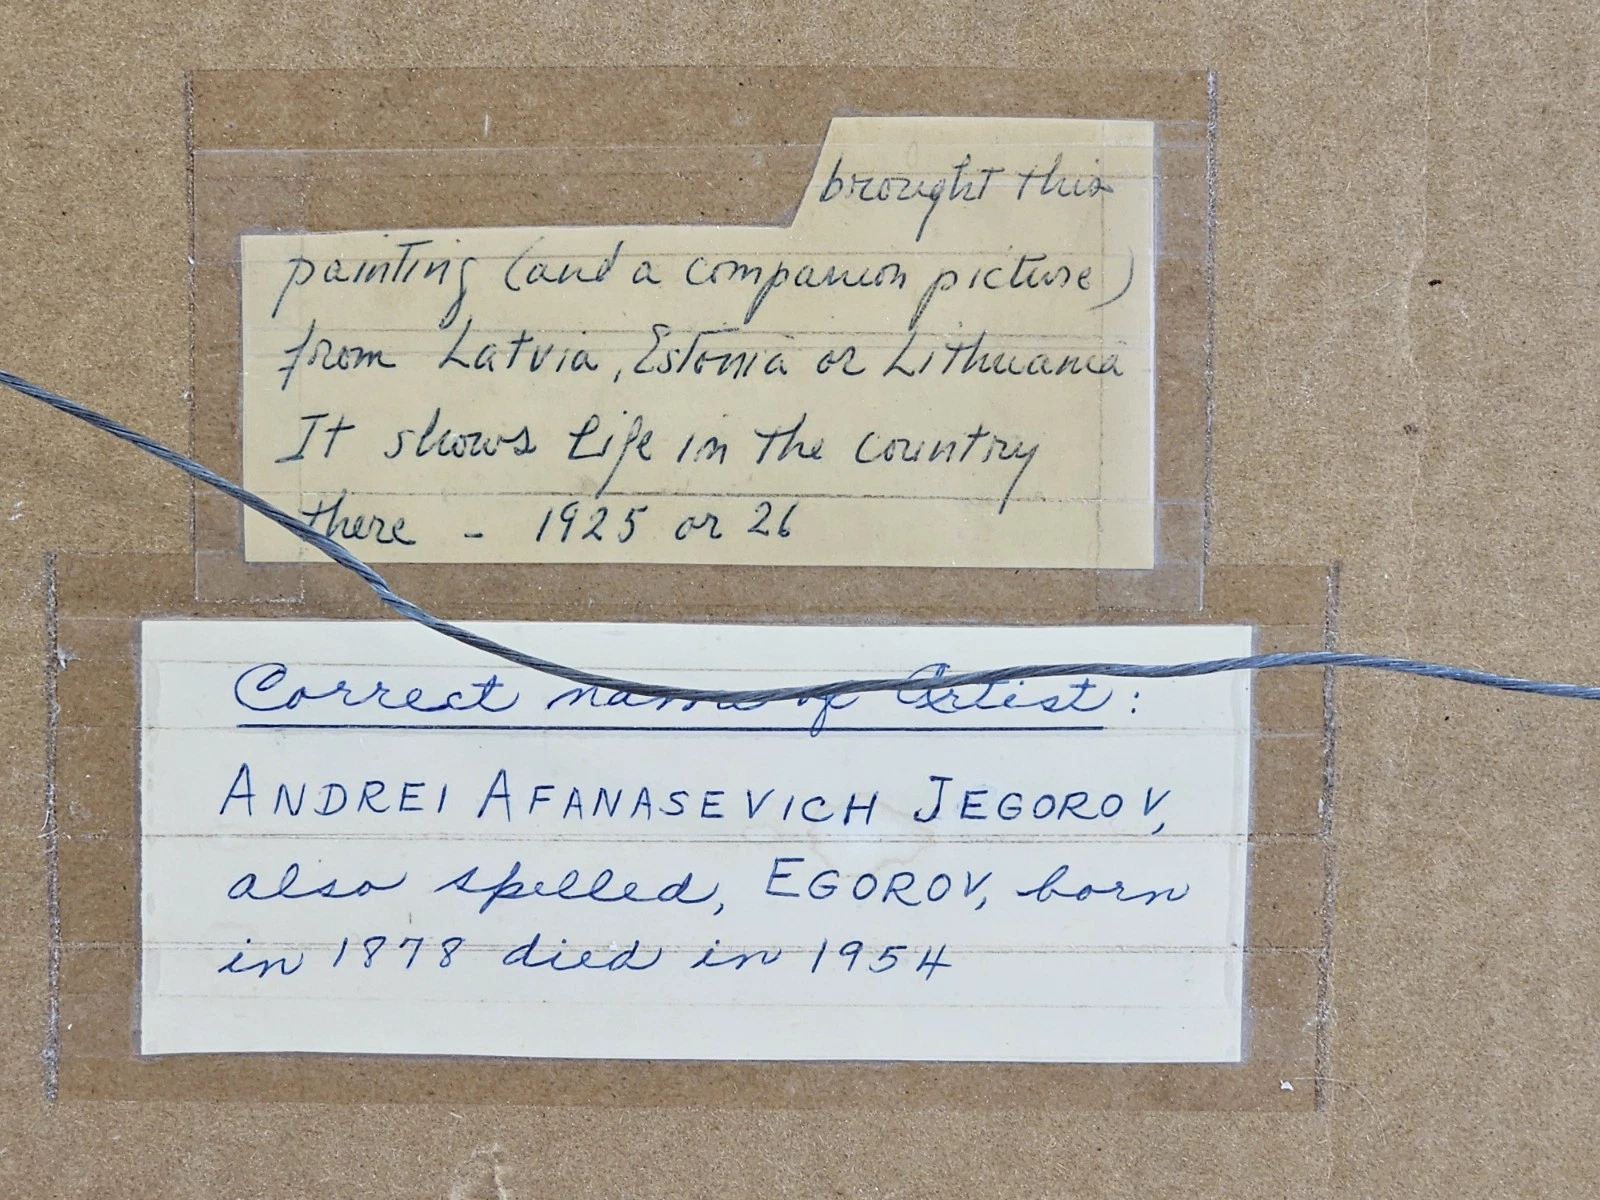 brought this
painting (and a companion picture)
from Latvia, Estonia or Lithuania
It shows life in the country
there - 1925 or 26
Correct name of Artist:
ANDREI AFANASEVICH JEGOROV,
also spelled, EGOROV, born
in 1878 died in 1954